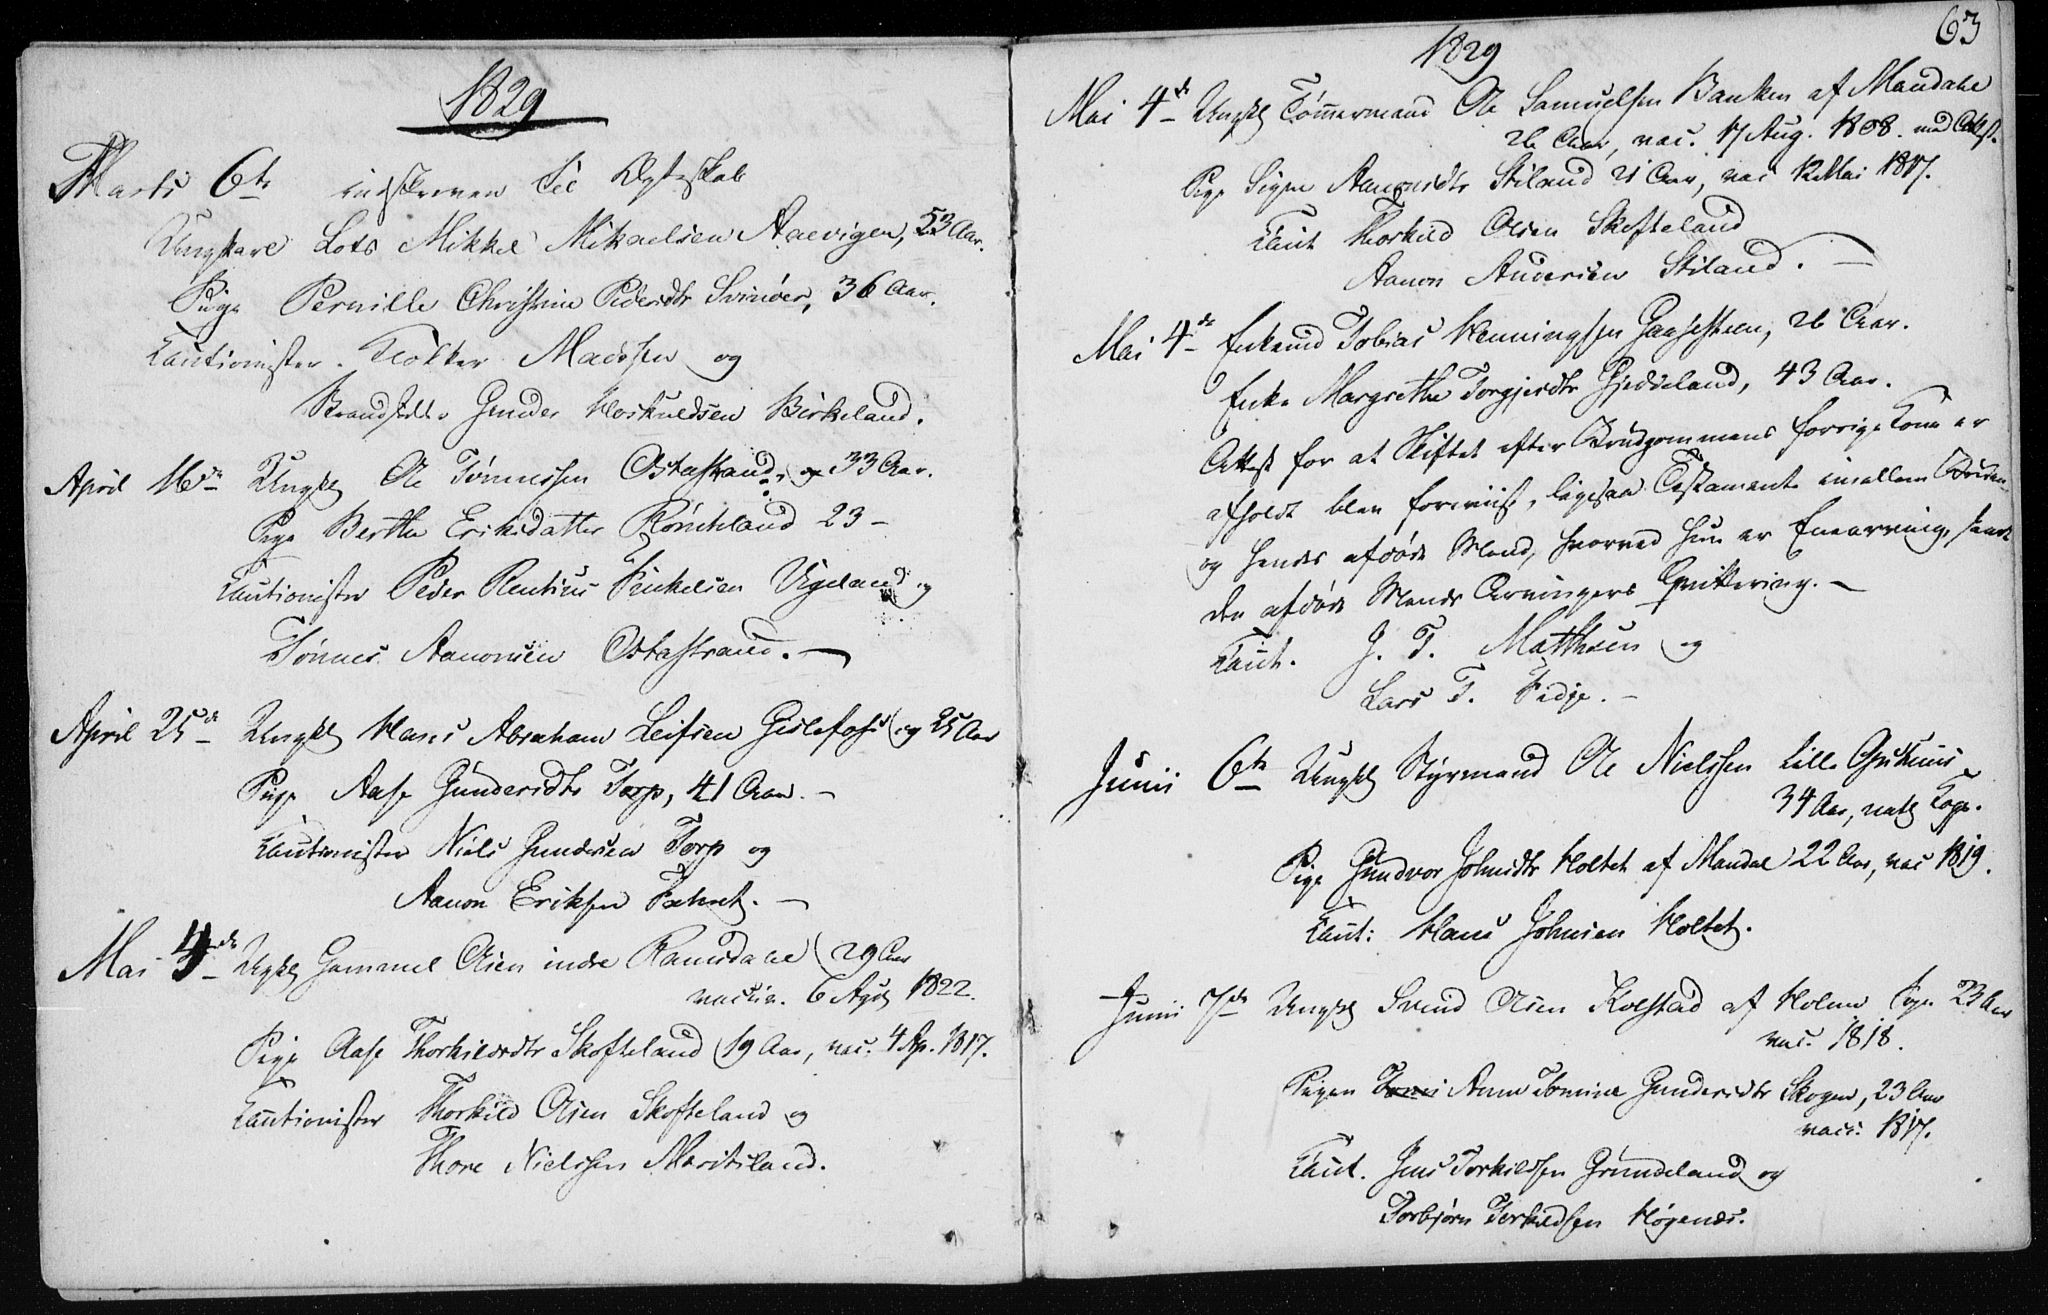 1829
Marts 6te indskreven til Ægteskab
Ungkarl Lods Mikkel Mikaelsen Aaevigen, 53 Aar.
Pige Pernille Christine Pedersdtr Svinöer, 36 Aar.
Kautionister. Klokker Madssen og
Brandstedt. Gunder Hoskuldsen Birkeland.
April 16de Ungkl Ole Tönnessen Ostastrand, og 33 Aar.
Pige Berthe Eriksdatter 23 -
Kautionister Peder Rentius Vigeland og
Tönnes Aanonsen Ostastrand. —
April 25de Ungkl Hans Abraham Leifsen Gislefoss og 25 Aar
Pige Aase Gundersdtr Torp, 41 Aar. -
Kautionister Niels Gundersen Torp og
Aanon Eriksen —
Mai 4de Ungkl Gammel Olsen indre Ramsdalen (29 Aar
vaccin. 6 1822.
Pige Aase Thorkildsdtr Skofteland (19 Aar, vac. 4 Ap. 1817.
Kautionister Thorkild Olsen Skofteland og
Thore Nielssen
63
1829
Mai 4de Ungkl Tömmermand Ole Samuelsen Banken af Mandal
26 Aar, vac. 17 Aug. 1808. med Attest.
Pige Signe Aanonsdtr Stiland 21 Aar, vac 12 Mai 1817.
Kaut Thorkild Olsen Skofteland
Aanon Andersen Stiland. —
Mai 4de Enkemd Tobias Henningsen Gaasesteen, 26 Aar.
Enke Margrethe Torgjersdtr 43 Aar.
Attest for at Skiftet efter Brudgommens forrige Kone er
afholdt blev foreviist, ligesaa Testamente imellem Bruden
og hendes afdöde Mand, hvorved hun er Enearving, samt
den afdöde Mands Arvingers Qvittering. —
Kaut. J. T. Matthsen og
Lars T. Fidje. -
Junii 6te Ungkl Styrmand Ole Nielssen Lille
34 Aar, natl Kopp.
Pige Gundvor Johnsdtr Holtet af Mandal 22 Aar, vac 1819.
Kaut: Hans Johnsen Holtet.
Junii 7de Ungkl Svend Olsen Kolstad af Holme Sogn 23 Aar
vac. 1818.
Pigen Anne Tomine Gundersdtr Skogen, 23 Aar
vacc. 1817.
Kaut. Jens Torkildsen Gründeland og
Torbjörn Terkildsen Högenes.